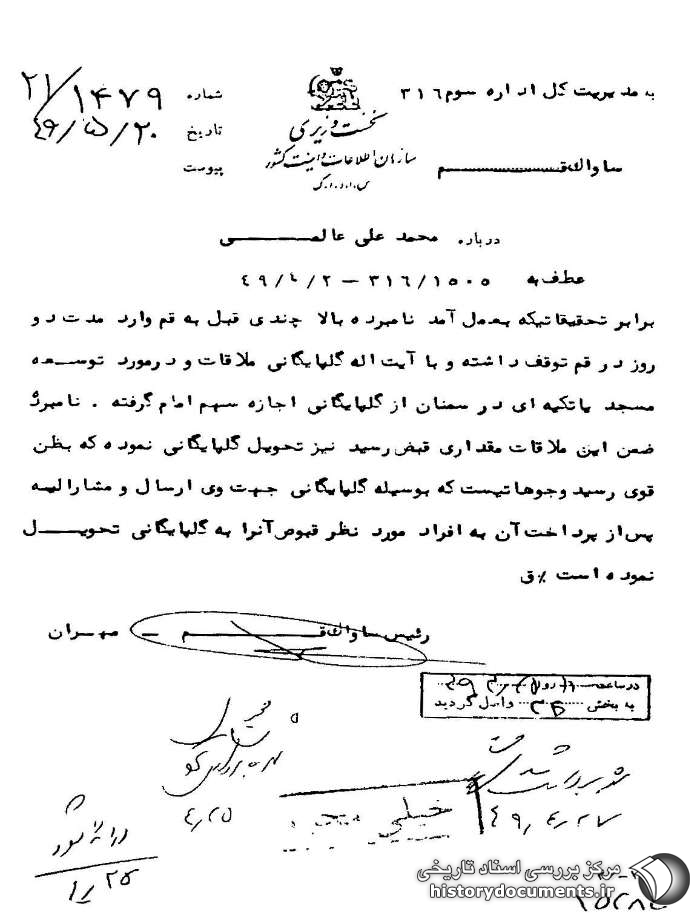 به مدیریت کل اداره سوم ۳۱۶
شماره ۲۱/۱۴۷۹
نخست وزیری
تاریخ ۴۹/۵/۲۰
سازمان اطلاعات و امنیت کشور
ساواک قم
پیوست
س.ا.و.ا.ک
درباره محمد علی عالمی
عطف به ۳۱۶/۱۵۰۵ – ۴۹/۴/۲
برابر تحقیقاتیکه بعمل آمد نامبرده بالا چندی قبل به قم وارد مدت دو
روز در قم توقف داشته و با آیت اله گلپایگانی ملاقات و درمورد توسعه
مسجد یا تکیه ای در سمنان از گلپایگانی اجازه سهم امام گرفته . نامبرده
ضمن این ملاقات مقداری قبض رسید نیز تحویل گلپایگانی نموده که بظن
قوی رسید وجوهاتیست که بوسیله گلپایگانی جهت وی ارسال و مشارالیه
پس از پرداخت آن به افراد مورد نظر قبوض آنرا به گلپایگانی تحویل
نموده است ٪ ق
رئیس ساواک قم – مهران
در ساعت روز
به بخش واصل گردید
۴/۲۵
خیلی
۴۹/۴/۲۷
مرکز بررسی اسناد تاریخی
historydocuments.ir